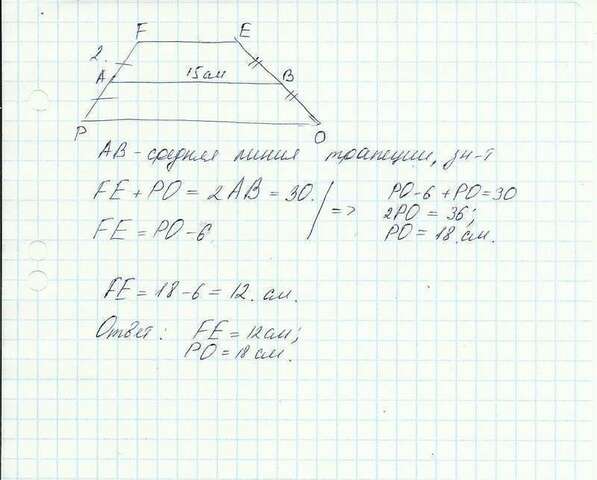 F E
2.
A 15 см B
P O
AB - средняя линия трапеции, зн-т
FE + PO = 2AB = 30.
FE = PO - 6.
=>
PO - 6 + PO = 30
2PO = 36;
PO = 18 см.
FE = 18 - 6 = 12. см.
Ответ: FE = 12 см;
PO = 18 см.